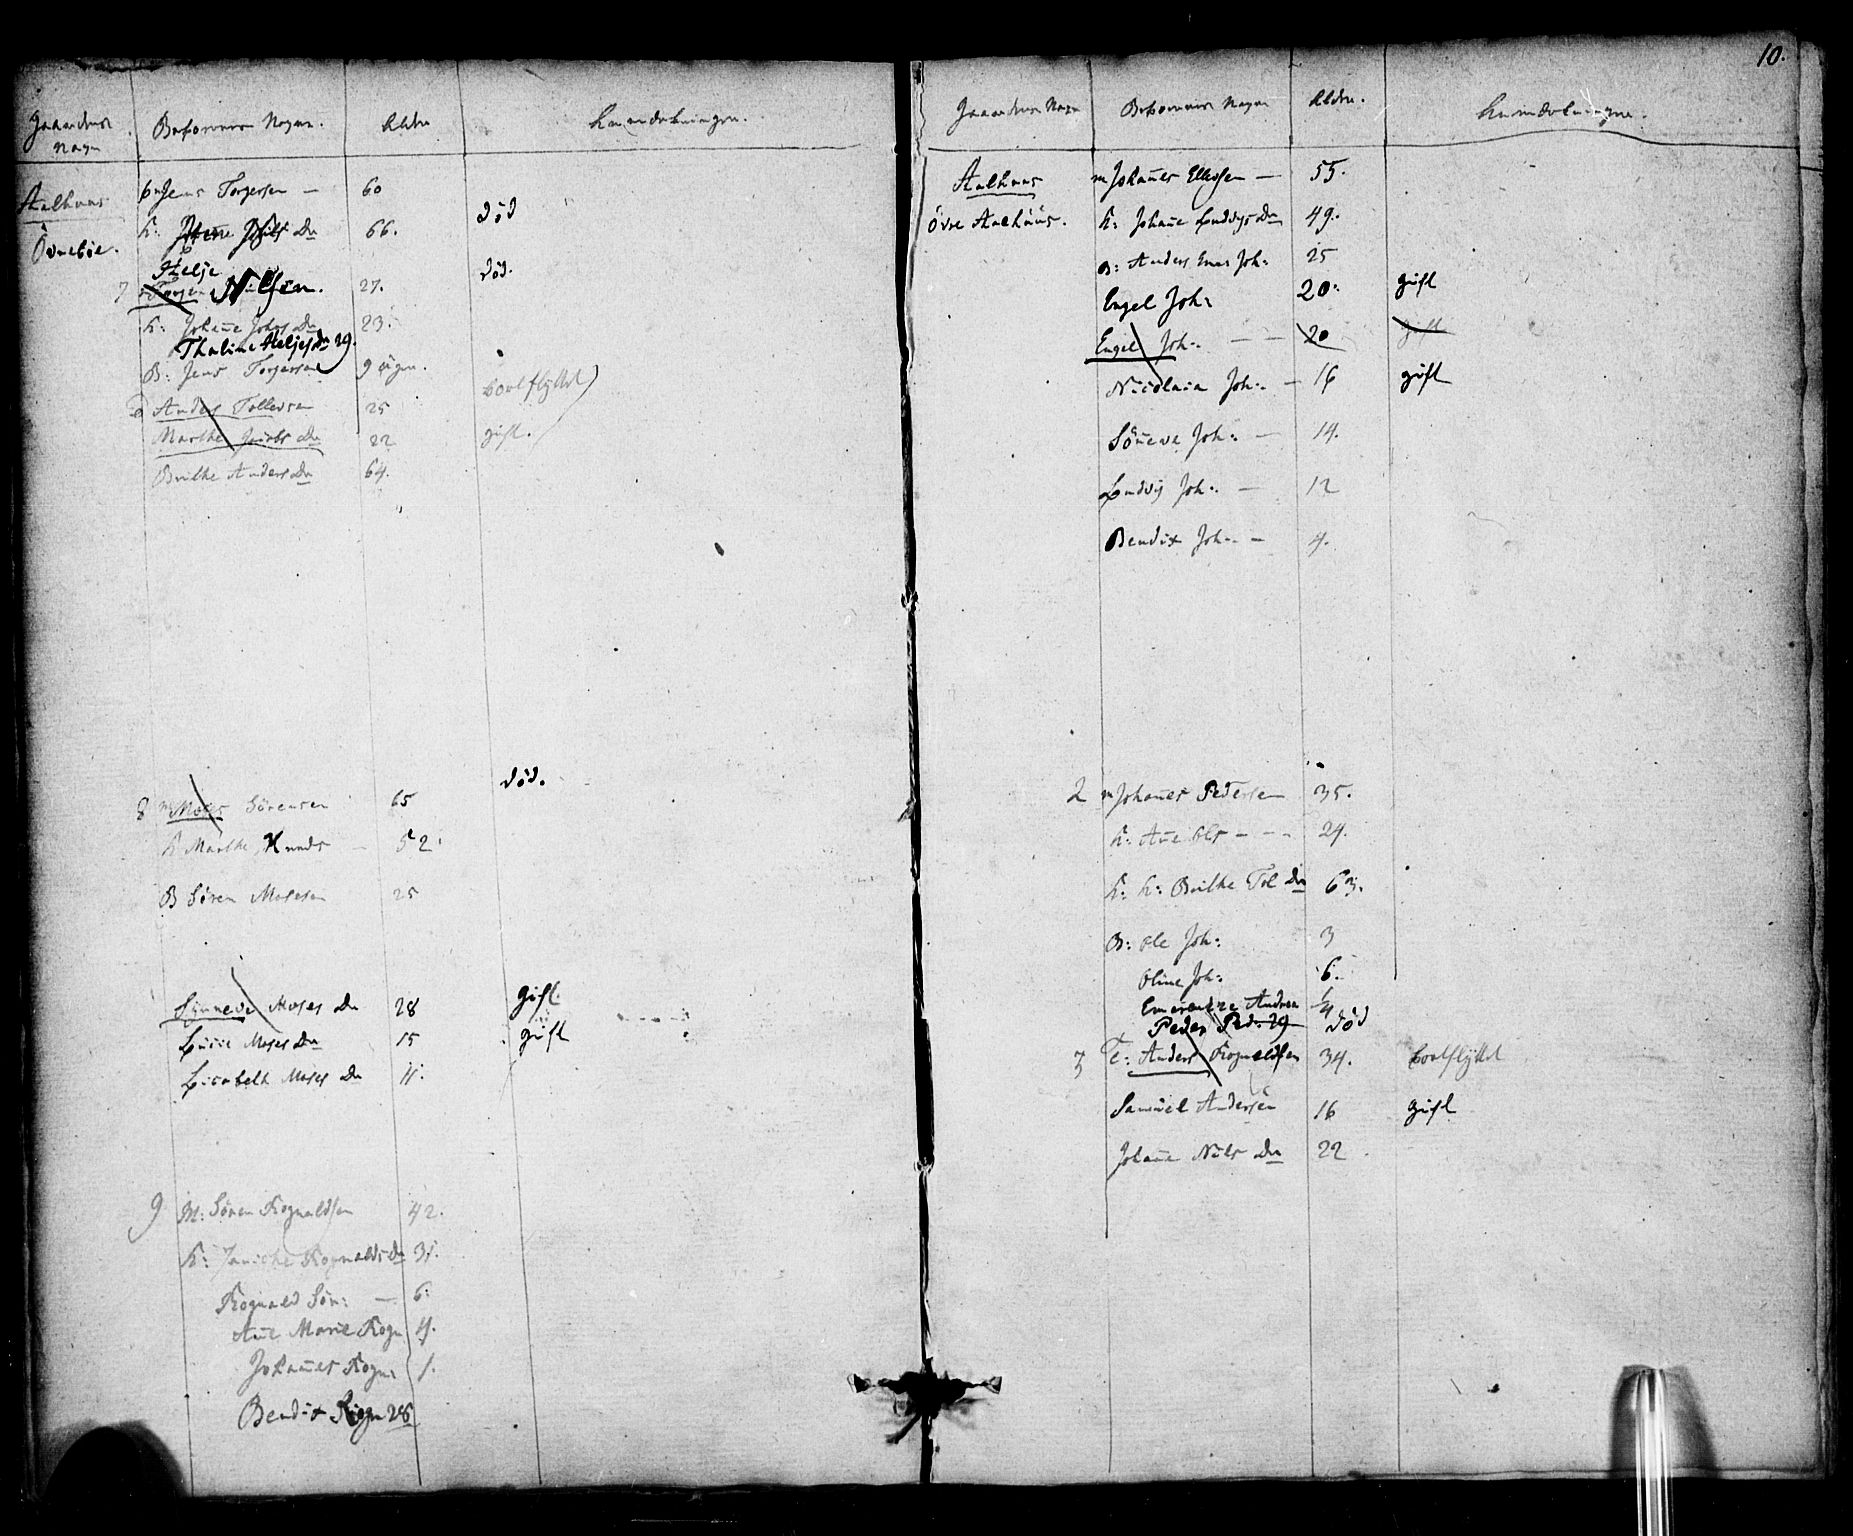 10.
Gaardens Navn
Beboernes Navne.
Alder
Anmærkninger.
Aalhuus
Jens Torgersen — 60
Övreböe.
K: Nils Dr 66. död
Helje
7 Torgen Nilsen. 27. död.
K: Johane Johs Dr 23.
Thaline Heljes Dr 29.
B: Jens Torgersen 9 ugen.
Anders Tollevsen 25 bortflyttet
Marthe Jacobs Dr 22 gift.
Brithe Anders Dr 64.
8 m Moses Sörensen 65 död.
K Marthe Knuds — 52
B Sören Mosesen 25
Sönneve Moses Dr 28 gift.
Lucie Moses Dr 15 gift
Lisabeth Moses Dr 11.
9 M: Sören Rognaldsen 42.
K: Janiche Rognalds Dr 31.
Rognald Sör: — 6
Ane Marie Rogn 4.
Johannes Rogn: 1.
Bendix Rogn 28
Gaardens Navn
Beboernes Navne
Alder.
Anmærkningerne.
Aalhuus
m Johanes Ellefsen — 55.
Övre Aalhuus.
K: Johane Ludvigs Dr 49.
B: Anders Joh: 25
Engel Joh: 20: gift
Engel Joh: — — 20 gift
Nicolaia Joh: — 16 gift
Söneve Joh: — 14.
Ludvig Joh: — 12
Bendix Joh: — 4.
2 m Johanes Pedersen 35.
K: Ane Ols — — — 24.
K: K: Brithe Tol Dr 63.
B: Ole Joh: 3
Oline Joh: 6.
Andrea 1/4
Peder Ped: 29 död
3 Anders Rognaldsen 34. bortflyttet
Samuel Andersen 16 gift
Johane Nils Dr 22